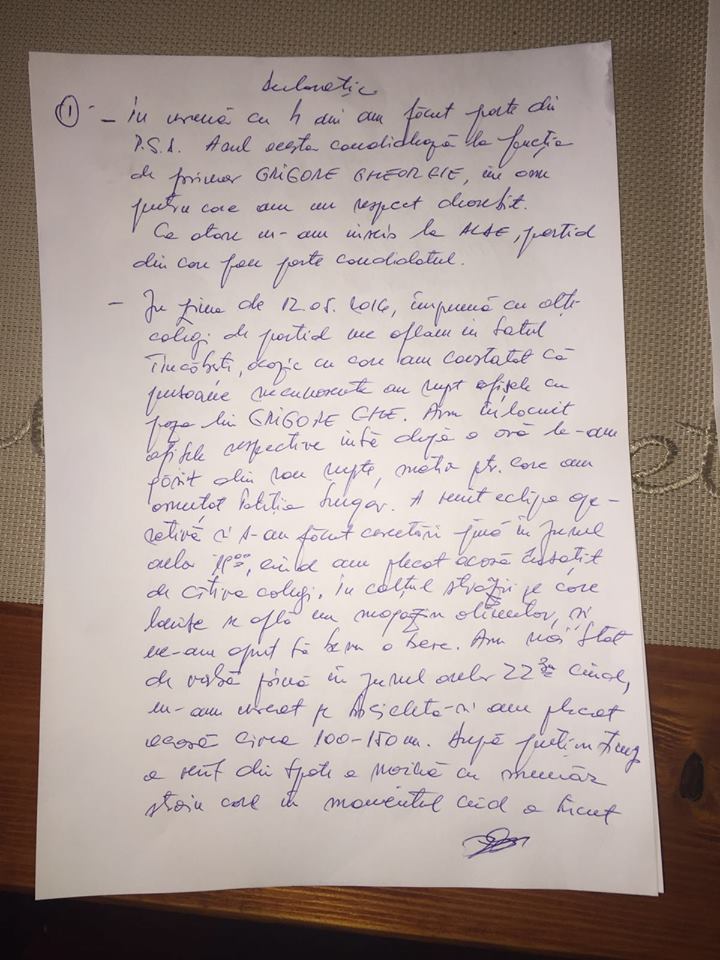 Declarație
① - În urmă cu 4 ani am făcut parte din
P.S.D. Anul acesta candidează la funcția
de primar GRIGORE GHEORGHE, un om
pentru care am un respect deosebit.
Ca atare m-am înscris la ALDE, partid
din care face parte candidatul.
- În ziua de 12.05.2016, împreună cu alți
colegi de partid ne aflam în Satul
ocazie cu care am constatat că
persoane necunoscute au rupt afișele cu
poza lui GRIGORE GHE. Am înlocuit
afișele respective însă după o oră le-am
găsit din nou rupte, motiv ptr. care am
anunțat Poliția A venit echipa ope-
rativă și s-au făcut cercetări până în jurul
orelor cînd am plecat acasă însoțit
de cîțiva colegi. În colțul străzii pe care
locuiesc se află un magazin alimentar, și
ne-am oprit să bem o bere. Am mai stat
de vorbă pînă în jurul orelor 22 30 cînd,
m-am urcat pe bicicletă și am plecat
acasă circa 100-150m. După puțin timp
a venit din spate o mașină cu număr
străin care în momentul cînd a trecut